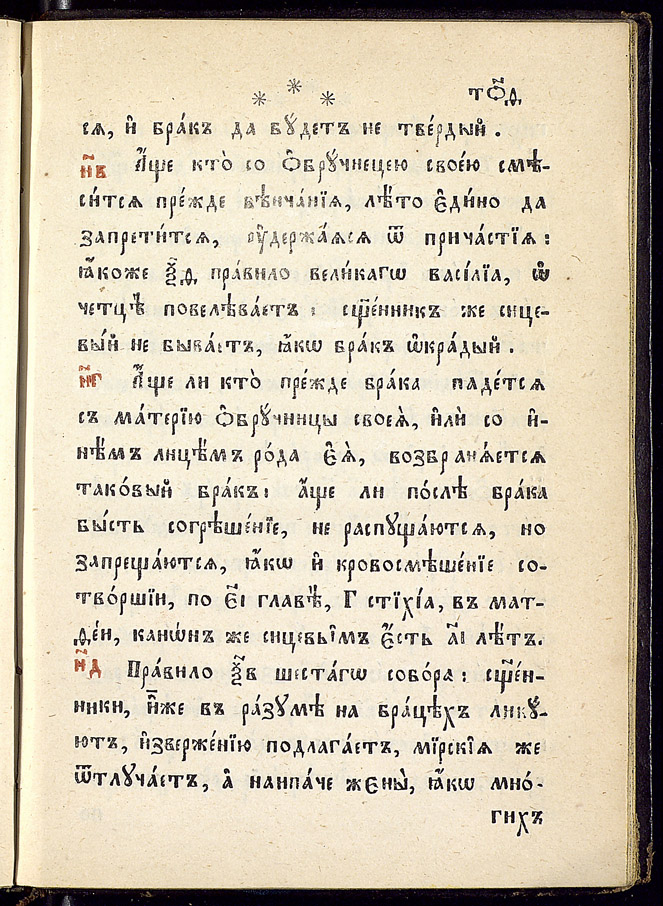 * * * тѲ҃д
сѧ, и҆ бра́къ да бꙋ́детъ не тве́рдый .
н҃в А҆́ще кто̀ со ѻ҆брꙋ́чнецею свое́ю смѣ-
си́тсѧ пре́жде вѣнча́нїѧ, лѣ́то є҆ди́но да
запрети́тсѧ, ᲂу҆держа́ѧсѧ ѿ прича́стїѧ :
ꙗ҆́коже ѯ҃ѳ пра́вило вели́кагѡ васі́лїа, ѡ҆
четцѣ̀ повелѣва́етъ : сщ҃е́нникъ же сице-
вы́й не быва́етъ, ꙗ҆́кѡ бра́къ ѡ҆кра́дый .
н҃г А҆́ще ли кто̀ пре́жде бра́ка паде́тсѧ
съ ма́терїю ѻ҆брꙋ́чницы своеѧ̀, и҆лѝ со и҆-
нѣ́мъ лицѐмъ ро́да є҆ѧ̀, возбранѧ́етсѧ
тако́вый бра́къ : а҆́ще ли по́слѣ бра́ка
бы́сть согрѣше́нїе, не распꙋща́ютсѧ, но
запреща́ютсѧ, ꙗ҆́кѡ и҆ кровосмѣше́нїе со-
тво́ршїи, по є҃і главѣ̀, г стїхі́а, въ мат-
ѳе́и, канѡ́нъ же сицевы̑мъ є҆́сть а҃і лѣ́тъ.
н҃д Пра́вило ѯ҃в шеста́гѡ собо́ра : сщ҃е́н-
ники, и҆̀же въ ра́зꙋмѣ на бра́цѣхъ ликꙋ́-
ютъ, и҆зверже́нїю подлага́етъ, мїрскі̑ѧ же
ѿлꙋча́етъ, а҆̀ наипа́че жєны̀, ꙗ҆́кѡ мно́-
гихъ